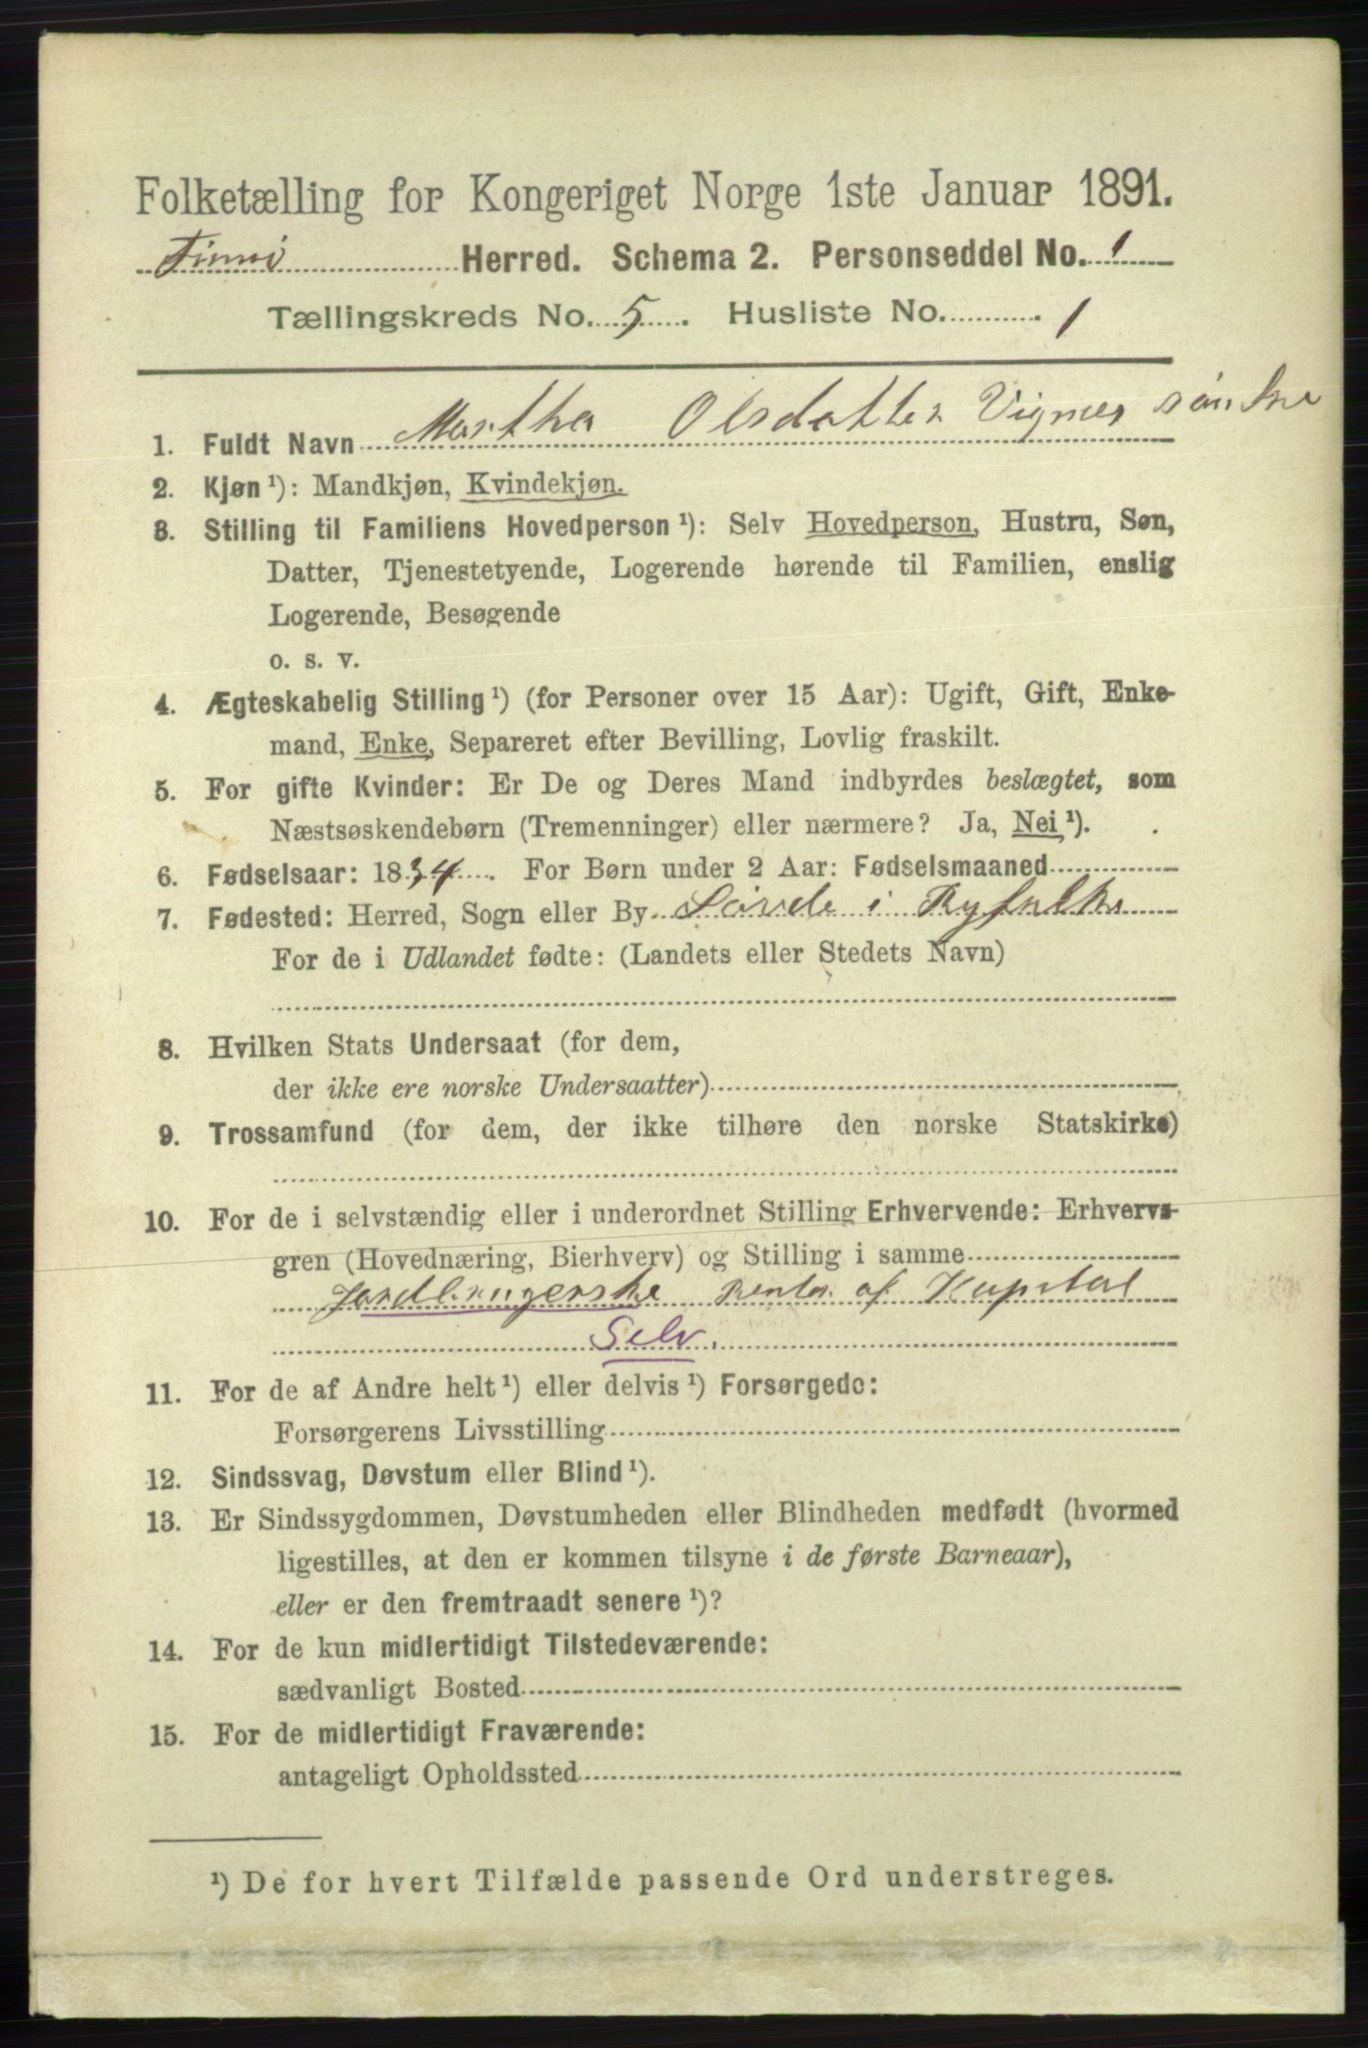 Folketælling for Kongeriget Norge 1ste Januar 1891.
Finnö Herred. Schema 2. Personseddel No. 1
Tællingskreds No. 5. Husliste No. 1
1. Fuldt Navn Martha Olsdatter Vignes
2. Kjøn ¹): Mandkjøn, Kvindekjøn.
3. Stilling til Familiens Hovedperson ¹): Selv Hovedperson, Hustru, Søn,
Datter, Tjenestetyende, Logerende hørende til Familien, enslig
Logerende, Besøgende
o. s. v.
4. Ægteskabelig Stilling ¹) (for Personer over 15 Aar): Ugift, Gift, Enke-
mand, Enke, Separeret efter Bevilling, Lovlig fraskilt.
5. For gifte Kvinder: Er De og Deres Mand indbyrdes beslægtet, som
Næstsøskendebørn (Tremenninger) eller nærmere? Ja, Nei ¹).
6. Fødselsaar: 1834. For Børn under 2 Aar: Fødselsmaaned
7. Fødested: Herred, Sogn eller By Søvde i Ryfylke
For de i Udlandet fødte: (Landets eller Stedets Navn)
8. Hvilken Stats Undersaat (for dem,
der ikke ere norske Undersaatter)
9. Trossamfund (for dem, der ikke tilhøre den norske Statskirke)
10. For de i selvstændig eller i underordnet Stilling Erhvervende: Erhvervs-
gren (Hovednæring, Bierhverv) og Stilling i samme
Jordbrugerske Renter af Kapital
Selv.
11. For de af Andre helt ¹) eller delvis ¹) Forsørgede:
Forsørgerens Livsstilling
12. Sindssvag, Døvstum eller Blind ¹).
13. Er Sindssygdommen, Døvstumheden eller Blindheden medfødt (hvormed
ligestilles, at den er kommen tilsyne i de første Barneaar),
eller er den fremtraadt senere ¹)?
14. For de kun midlertidigt Tilstedeværende:
sædvanligt Bosted
15. For de midlertidigt Fraværende:
antageligt Opholdssted
¹) De for hvert Tilfælde passende Ord understreges.